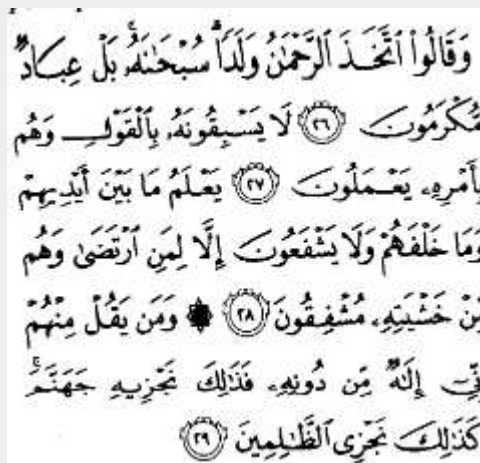 وَقَالُوا۟ ٱتَّخَذَ ٱلرَّحْمَـٰنُ وَلَدًۭا ۗ سُبْحَـٰنَهُۥ ۚ بَلْ عِبَادٌۭ
مُّكْرَمُونَ ٢٦ لَا يَسْبِقُونَهُۥ بِٱلْقَوْلِ وَهُم
بِأَمْرِهِۦ يَعْمَلُونَ ٢٧ يَعْلَمُ مَا بَيْنَ أَيْدِيهِمْ
وَمَا خَلْفَهُمْ وَلَا يَشْفَعُونَ إِلَّا لِمَنِ ٱرْتَضَىٰ وَهُم
مِّنْ خَشْيَتِهِۦ مُشْفِقُونَ ٢٨ ۞ وَمَن يَقُلْ مِنْهُمْ
إِنِّىٓ إِلَـٰهٌۭ مِّن دُونِهِۦ فَذَٰلِكَ نَجْزِيهِ جَهَنَّمَ ۚ
كَذَٰلِكَ نَجْزِى ٱلظَّـٰلِمِينَ ٢٩